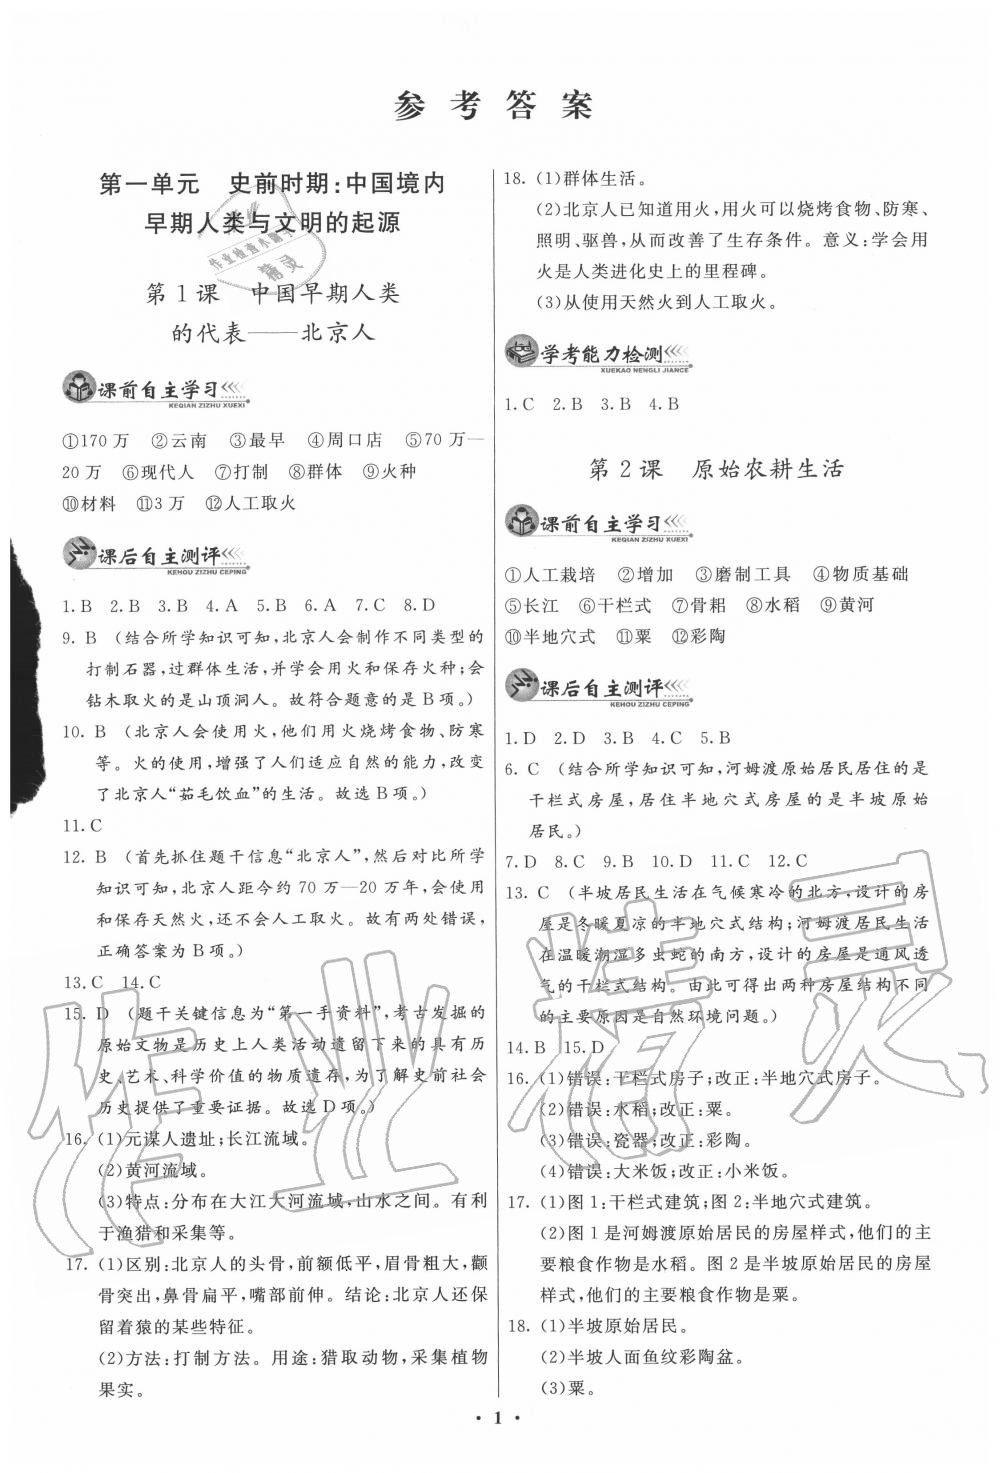 参考答案
第一单元 史前时期:中国境内
早期人类与文明的起源
第1课 中国早期人类
的代表——北京人
课前自主学习
KEQIAN ZIZHU XUEXI
①170万 ②云南 ③最早 ④周口店 ⑤70万—
20万 ⑥现代人 ⑦打制 ⑧群体 ⑨火种
⑩材料 ⑪3万 ⑫人工取火
课后自主测评
KEHOU ZIZHU CEPING
1.B 2.B 3.B 4.A 5.B 6.A 7.C 8.D
9. B (结合所学知识可知,北京人会制作不同类型的
打制石器,过群体生活,并学会用火和保存火种;会
钻木取火的是山顶洞人。故符合题意的是B项。)
10. B (北京人会使用火,他们用火烧烤食物、防寒
等。火的使用,增强了人们适应自然的能力,改变
了北京人“茹毛饮血”的生活。故选B项。)
11.C
12. B (首先抓住题干信息“北京人”,然后对比所学
知识可知,北京人距今约70万—20万年,会使用
和保存天然火,还不会人工取火。故有两处错误,
正确答案为B项。)
13.C 14.C
15. D (题干关键信息为“第一手资料”,考古发掘的
原始文物是历史上人类活动遗留下来的具有历
史、艺术、科学价值的物质遗存,为了解史前社会
历史提供了重要证据。故选D项。)
16. (1)元谋人遗址;长江流域。
(2)黄河流域。
(3)特点:分布在大江大河流域,山水之间。有利
于渔猎和采集等。
17. (1)区别:北京人的头骨,前额低平,眉骨粗大,颧
骨突出,鼻骨扁平,嘴部前伸。结论:北京人还保
留着猿的某些特征。
(2)方法:打制方法。用途:猎取动物,采集植物
果实。
18. (1)群体生活。
(2)北京人已知道用火,用火可以烧烤食物、防寒、
照明、驱兽,从而改善了生存条件。意义:学会用
火是人类进化史上的里程碑。
(3)从使用天然火到人工取火。
学考能力检测
XUEKAO NENGLI JIANCE
1.C 2.B 3.B 4.B
第2课 原始农耕生活
课前自主学习
KEQIAN ZIZHU XUEXI
①人工栽培 ②增加 ③磨制工具 ④物质基础
⑤长江 ⑥干栏式 ⑦骨耜 ⑧水稻 ⑨黄河
⑩半地穴式 ⑪粟 ⑫彩陶
课后自主测评
KEHOU ZIZHU CEPING
1.D 2.D 3.B 4.C 5.B
6. C (结合所学知识可知,河姆渡原始居民居住的是
干栏式房屋,居住半地穴式房屋的是半坡原始
居民。)
7.D 8.C 9.B 10.D 11.C 12.C
13. C (半坡居民生活在气候寒冷的北方,设计的房
屋是冬暖夏凉的半地穴式结构;河姆渡居民生活
在温暖潮湿多虫蛇的南方,设计的房屋是通风透
气的干栏式结构。由此可得出两种房屋结构不同
的主要原因是自然环境问题。)
14.B 15.D
16. (1)错误:干栏式房子;改正:半地穴式房子。
(2)错误:水稻;改正:粟。
(3)错误:瓷器;改正:彩陶。
(4)错误:大米饭;改正:小米饭。
17. (1)图1:干栏式建筑;图2:半地穴式建筑。
(2)图1是河姆渡原始居民的房屋样式,他们的主
要粮食作物是水稻。图2是半坡原始居民的房屋
样式,他们的主要粮食作物是粟。
18. (1)半坡原始居民。
(2)半坡人面鱼纹彩陶盆。
(3)粟。
· 1 ·
作业检查小助手
精灵
作业精灵